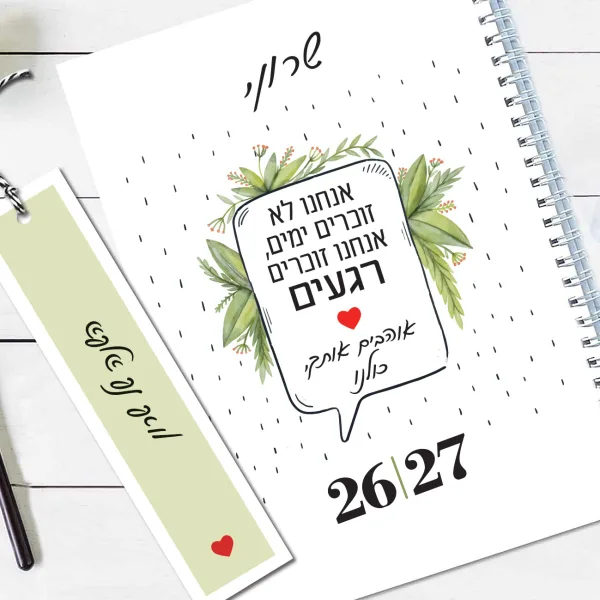 שרוני
אנחנו לא
זוכרים ימים,
אנחנו זוכרים
רגעים
אוהבים אותך
כולנו
26|27